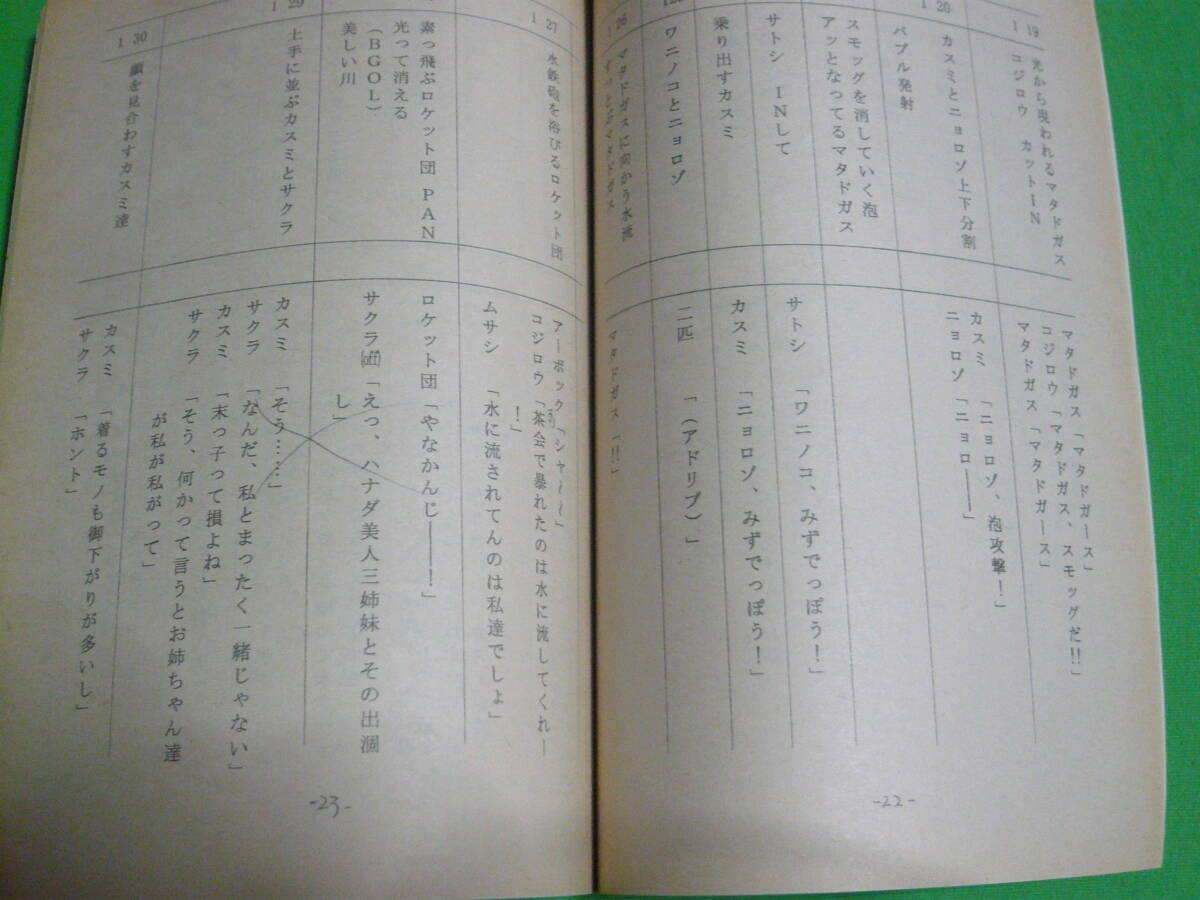 1 19
光から現われるマタドガス
コジロウ　カットIN
マタドガス「マタドガース」
コジロウ「マタドガス、スモッグだ!!」
マタドガス「マタドガース」
1 20
カスミとニョロゾ上下分割
カスミ　「ニョロゾ、泡攻撃！」
ニョロゾ「ニョロ――」
バブル発射
スモッグを消していく泡
アッとなってるマタドガス
サトシ　INして
サトシ　「ワニノコ、みずでっぽう！」
乗り出すカスミ
カスミ　「ニョロゾ、みずでっぽう！」
ワニノコとニョロゾ
二匹　「（アドリブ）」
1 26
マタドガスに向かう水流
マタドガス「!!」
-22-
1 27
水鉄砲を浴びるロケット団
アーボック「シャ～～」
コジロウ「茶会で暴れたのは水に流してくれー
！」
ムサシ　「水に流されてんのは私達でしょ」
素っ飛ぶロケット団 PAN
光って消える
（BGOL）
美しい川
ロケット団「やなかんじ――！」
サクラ(off)「えっ、ハナダ美人三姉妹とその出涸
し」
1 29
上手に並ぶカスミとサクラ
カスミ　「そう……」
サクラ　「なんだ、私とまったく一緒じゃない」
カスミ　「末っ子って損よね」
サクラ　「そう、何かって言うとお姉ちゃん達
が私が私がって」
1 30
顔を見合わすカスミ達
カスミ　「着るモノも御下がりが多いし」
サクラ　「ホント」
-23-